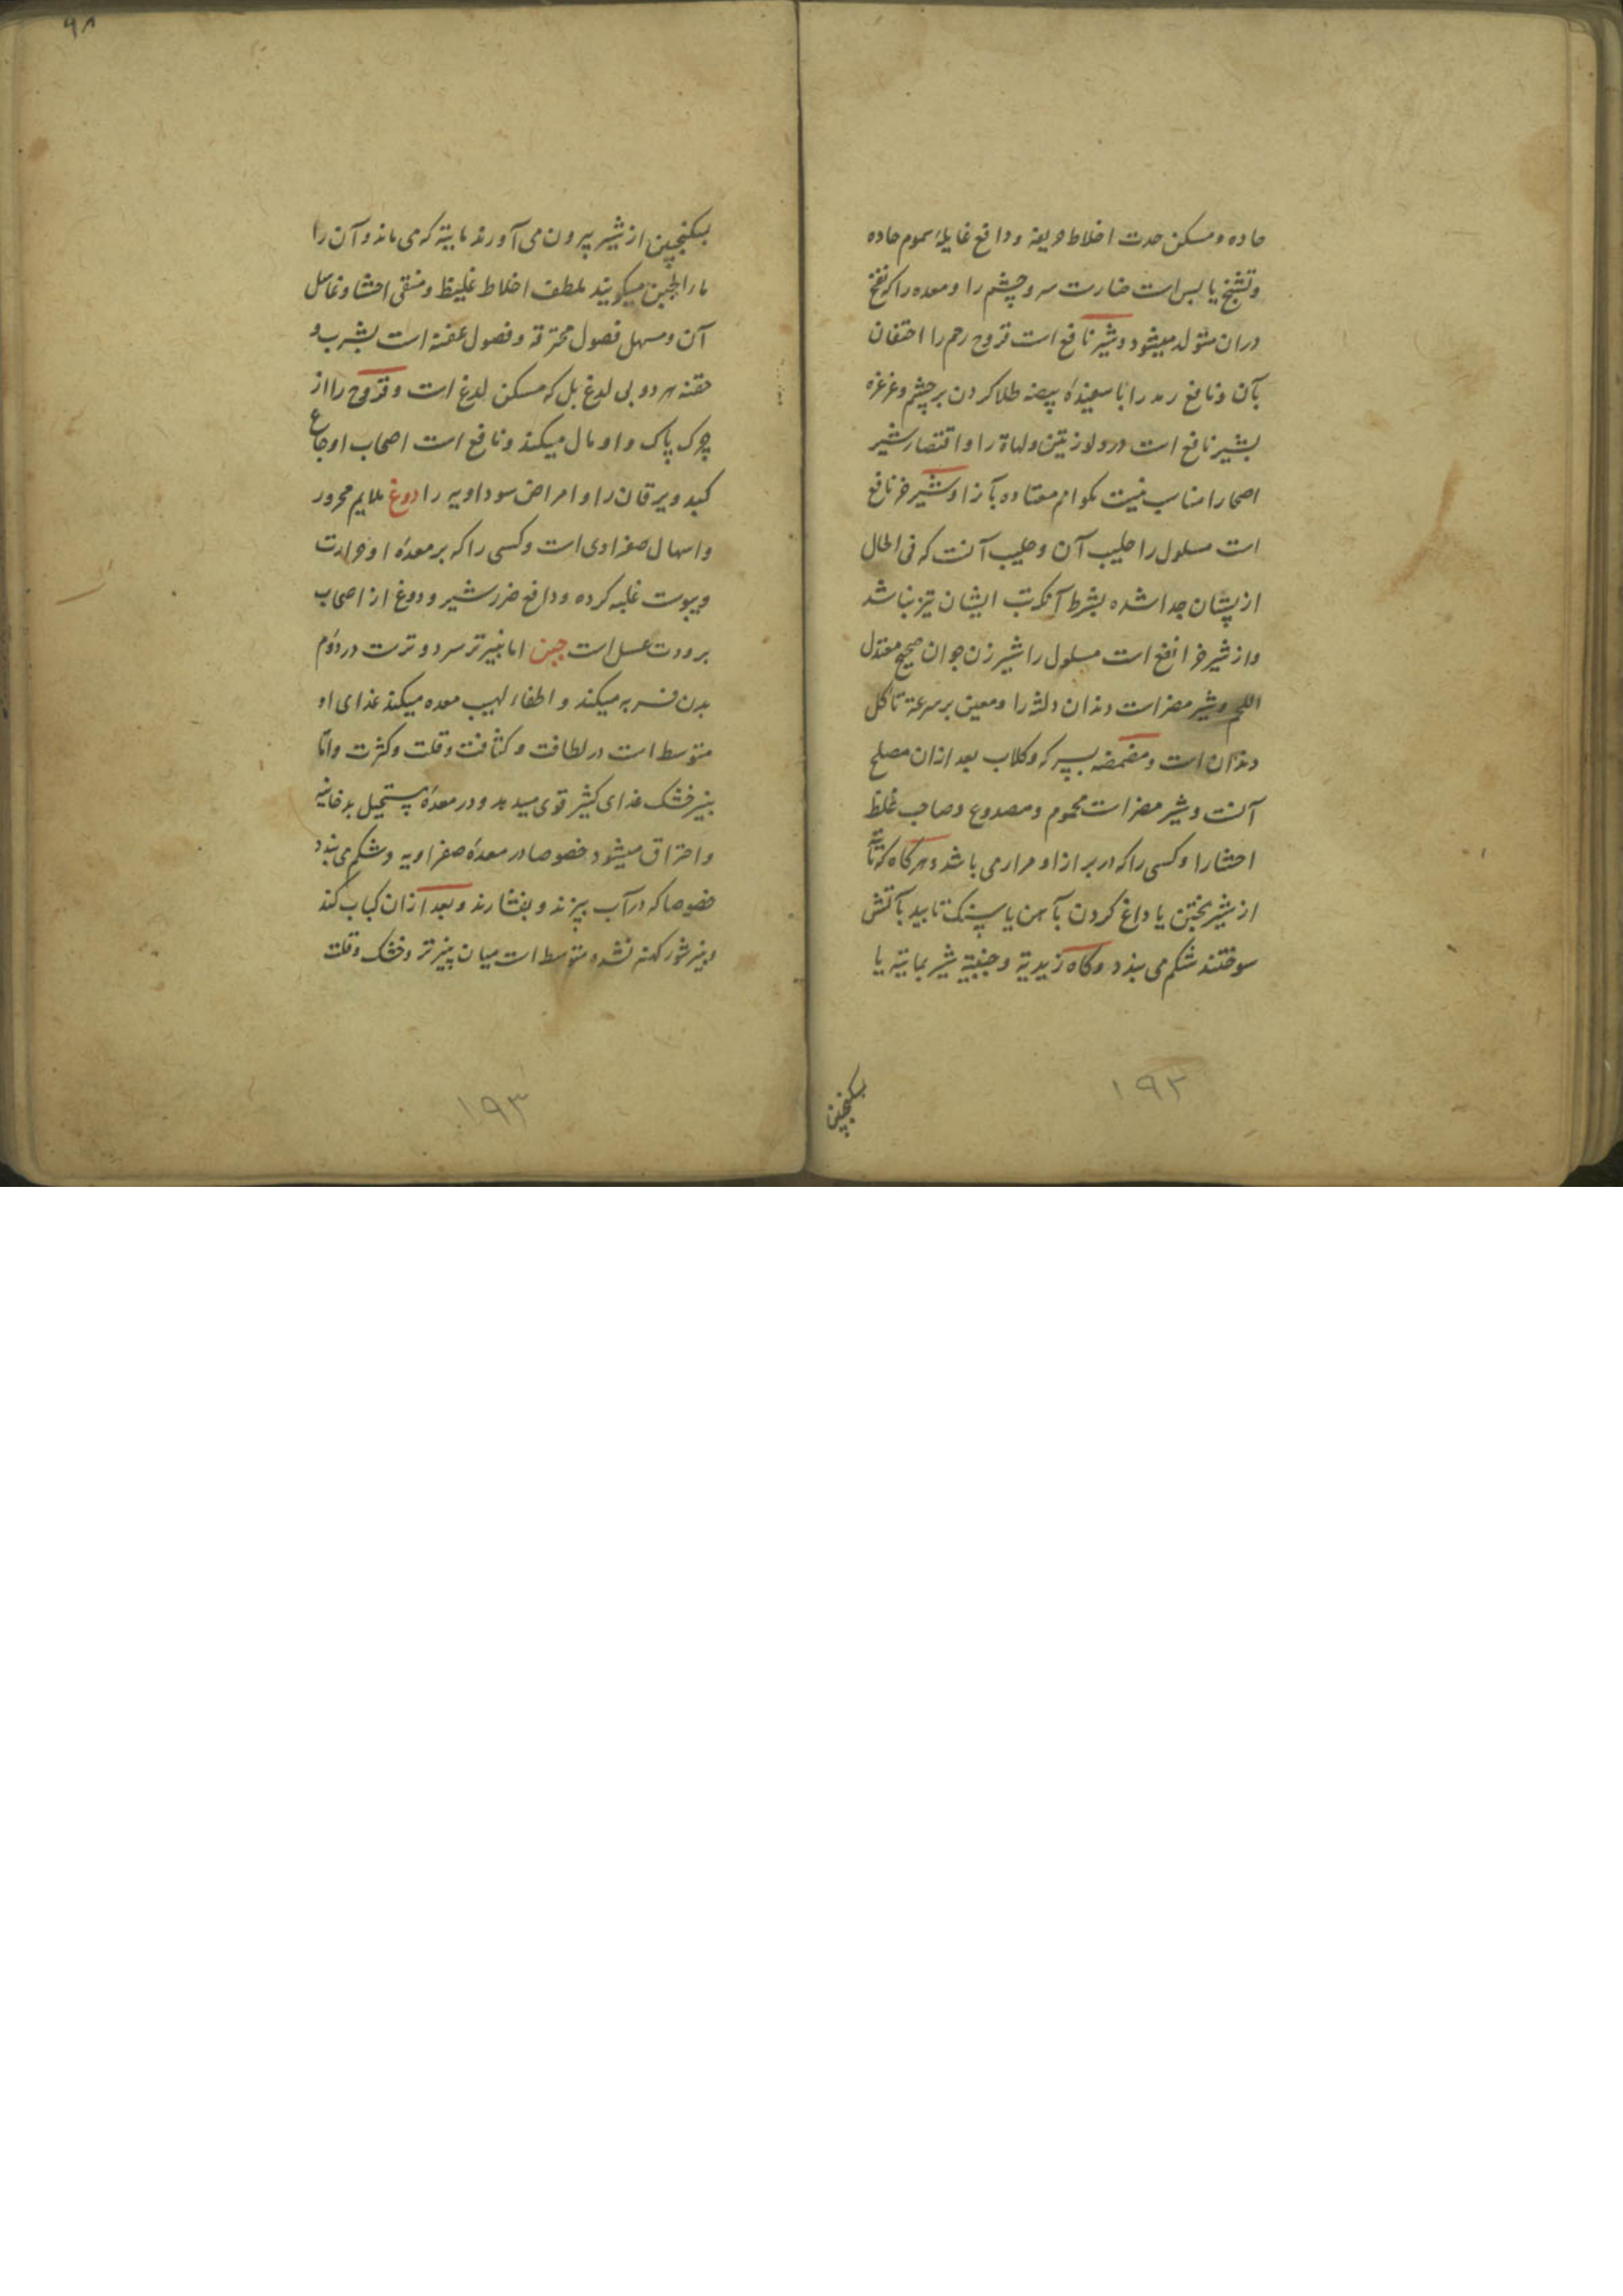 حاده و مسکن حدت اخلاط حریفه و دافع غایلهٔ سموم حاده
و تشنج یابس است ضارست سر و چشم را و معده را که نفخ
دران متولد میشود و شیر نافع است قروح رحم را احتقان
بآن و نافع رمد را با سفیدهٔ بیضه طلا کردن بر چشم و غرغره
بشیر نافع است درد لوزتین و لهاة را و اقتصار شیر
اصحا را مناسب نیست مکر انرا معتاده بآن را و شیر خر نافع
است مسلول را حلیب آن و حلیب آنست که فی الحال
از پستان جدا شده بشرط آنکه تب ایشان تیز نباشد
و از شیر خر انفع است مسلول را شیر زن جوان صحیح معتدل
اللحم و شیر مضر است دندان و لثه را و معین بر سرعة تاکل
دندان است و مضمضه بسرکه و کلاب بعد ازان مصلح
آنست و شیر مضر است محموم و مصدوع و صاحب غلظ
احشا را و کسی را که در براز او مرار می باشد و هر کاه که مائیة
از شیر بپختن یا داغ کردن بآهن یا سنک تابیده بآتش
سوختند شکم می بندد و کاه زبدیة و جبنیة شیر بمائیة یا
بسکنجبین
۱۹۲
۹۸
بسکنجبین از شیر بیرون می آورند مائیة که می ماند و آن را
ماء الجبن میکویند ملطف اخلاط غلیظ و منقی احشا و غاسل
آن و مسهل فصول محترقه و فصول عفنه است بشرب و
حقنه هر دو بی لدغ بل که مسکن لدغ است و قروح را از
چرک پاک و اومال میکند و نافع است اصحاب اوجاع
کبد و یرقان را و امراض سوداویه را دوغ ملایم محرور
و اسهال صفراوی است و کسی را که بر معدهٔ او حرارت
و یبوست غلبه کرده و دافع ضرر شیر و دوغ از اصحاب
برودت عسل است جبن اما پنیر تر سرد و ترست در دوم
بدن فربه میکند و اطفاء لهیب معده میکند غذای او
متوسط است در لطافت و کثافت و قلت و کثرت و اما
پنیر خشک غذای کثیر قوی میدهد و در معده مستحیل بدخانیه
و احتراق میشود خصوصا در معدهٔ صفراویه و شکم می بندد
خصوصا که در آب بپزند و بفشارند و بعد ازان کباب کند
و پنیر شور کهنه نشده متوسط است میان پنیر تر و خشک و قلت
۱۹۳